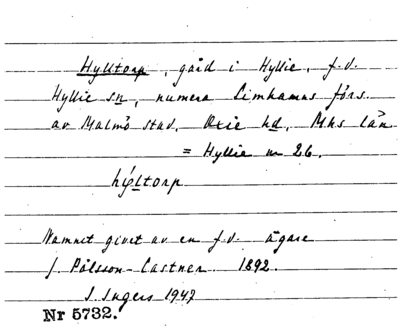 Hylltorp, gård i Hyllie, f.d.
Hyllie sn, numera Limhamns förs.
av Malmö stad, Oxie hd, Mhs län
= Hyllie nr 26.
hýltorp
Namnet givet av en f.d. ägare
J. Pålsson-Castner 1892.
I. Ingers 1947
Nr 5732.